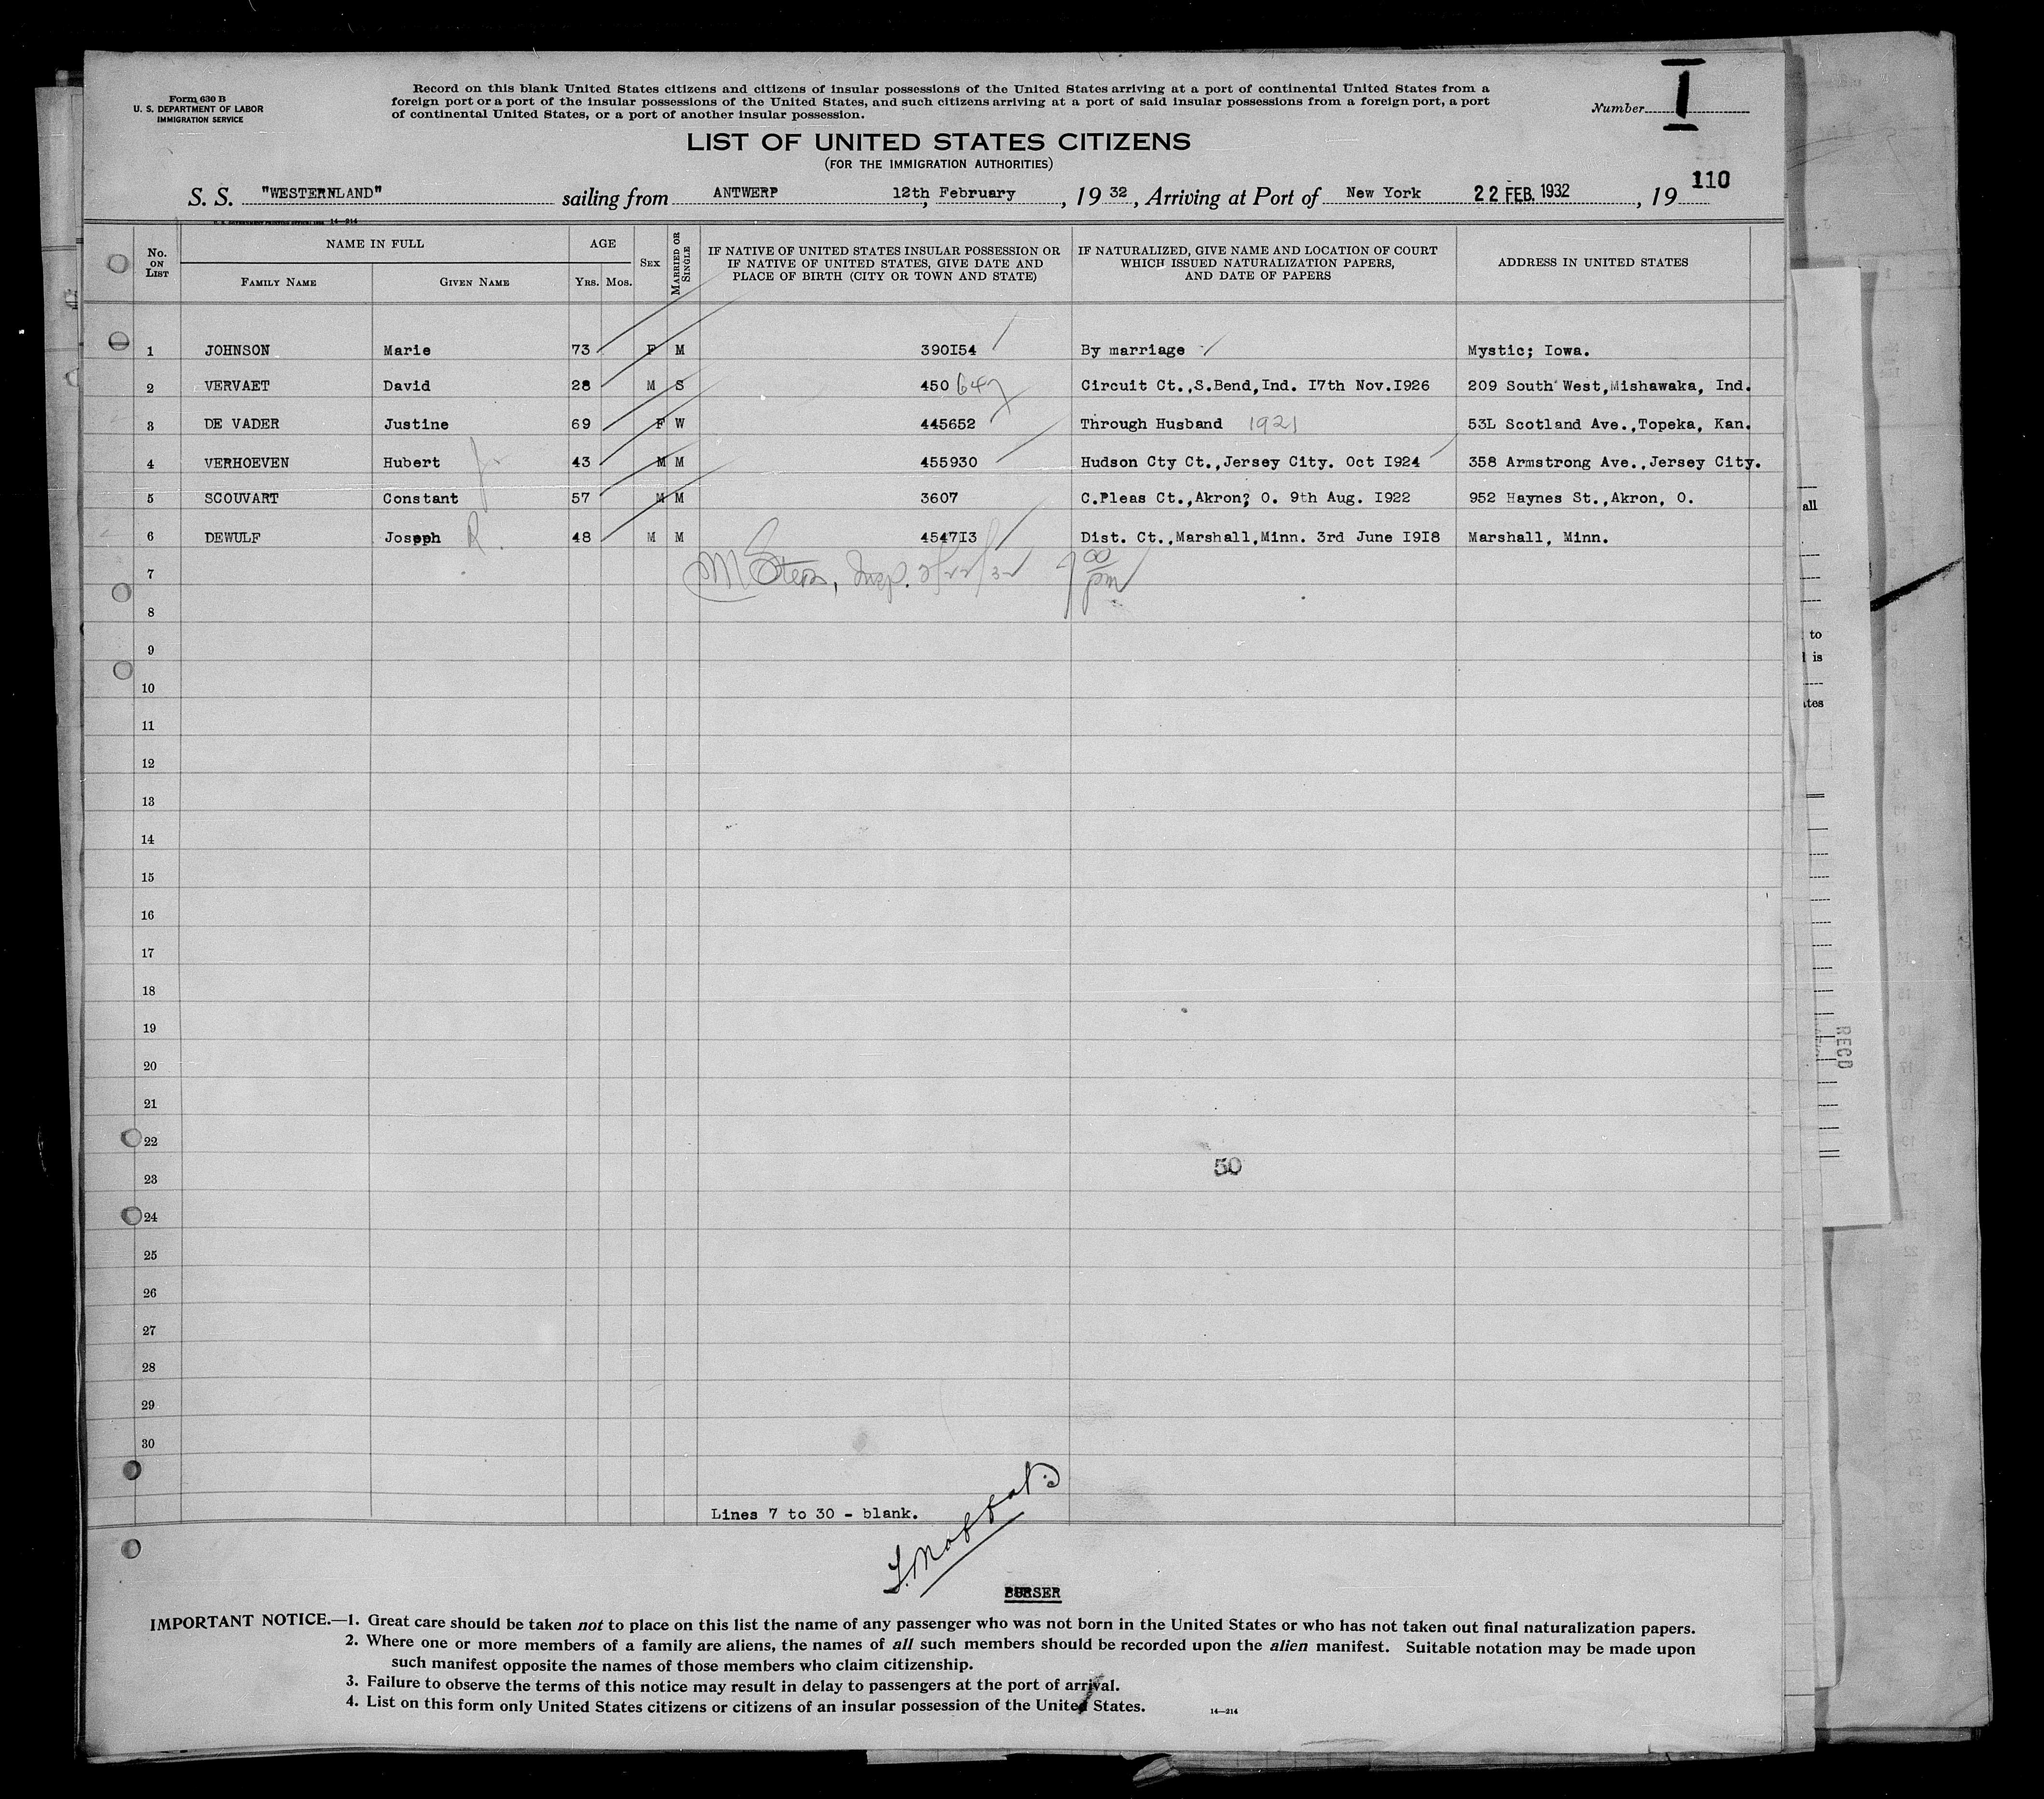 Form 630 B
U. S. DEPARTMENT OF LABOR
IMMIGRATION SERVICE
Record on this blank United States citizens and citizens of insular possessions of the United States arriving at a port of continental United States from a
foreign port or a port of the insular possessions of the United States, and such citizens arriving at a port of said insular possessions from a foreign port, a port
of continental United States, or a port of another insular possession.
Number I
LIST OF UNITED STATES CITIZENS
(FOR THE IMMIGRATION AUTHORITIES)
110
S. S. "WESTERNLAND" sailing from ANTWERP 12th February, 19 32, Arriving at Port of New York 22 FEB. 1932, 19
14—214
No. ON LIST NAME IN FULL FAMILY NAME GIVEN NAME AGE YRS. MOS. SEX MARRIED OR SINGLE IF NATIVE OF UNITED STATES INSULAR POSSESSION OR IF NATIVE OF UNITED STATES, GIVE DATE AND PLACE OF BIRTH (CITY OR TOWN AND STATE) IF NATURALIZED, GIVE NAME AND LOCATION OF COURT WHICH ISSUED NATURALIZATION PAPERS, AND DATE OF PAPERS ADDRESS IN UNITED STATES
1 JOHNSON Marie 73 F M 390I54 By marriage Mystic; Iowa.
2 VERVAET David 28 M S 450 647 Circuit Ct.,S.Bend,Ind. I7th Nov.I926 209 South West,Mishawaka, Ind.
3 DE VADER Justine 69 F W 445652 Through Husband 1921 53L Scotland Ave.,Topeka, Kan.
4 VERHOEVEN Hubert J. 43 M M 455930 Hudson Cty Ct.,Jersey City. Oct I924 358 Armstrong Ave.,Jersey City.
5 SCOUVART Constant 57 M M 3607 C.Pleas Ct.,Akron; O. 9th Aug. I922 952 Haynes St.,Akron, O.
6 DEWULF Joseph R. 48 M M 4547I3 Dist. Ct.,Marshall,Minn. 3rd June I9I8 Marshall, Minn.
7 Insp. 2/22/32 7 00 pm
8
9
10
11
12
13
14
15
16
17
18
19
20
21
22
23 50
24
25
26
27
28
29
30
Lines 7 to 30 - blank.
PURSER
IMPORTANT NOTICE.—1. Great care should be taken not to place on this list the name of any passenger who was not born in the United States or who has not taken out final naturalization papers.
2. Where one or more members of a family are aliens, the names of all such members should be recorded upon the alien manifest. Suitable notation may be made upon
such manifest opposite the names of those members who claim citizenship.
3. Failure to observe the terms of this notice may result in delay to passengers at the port of arrival.
4. List on this form only United States citizens or citizens of an insular possession of the United States.
14—214
all
to
is
RECD